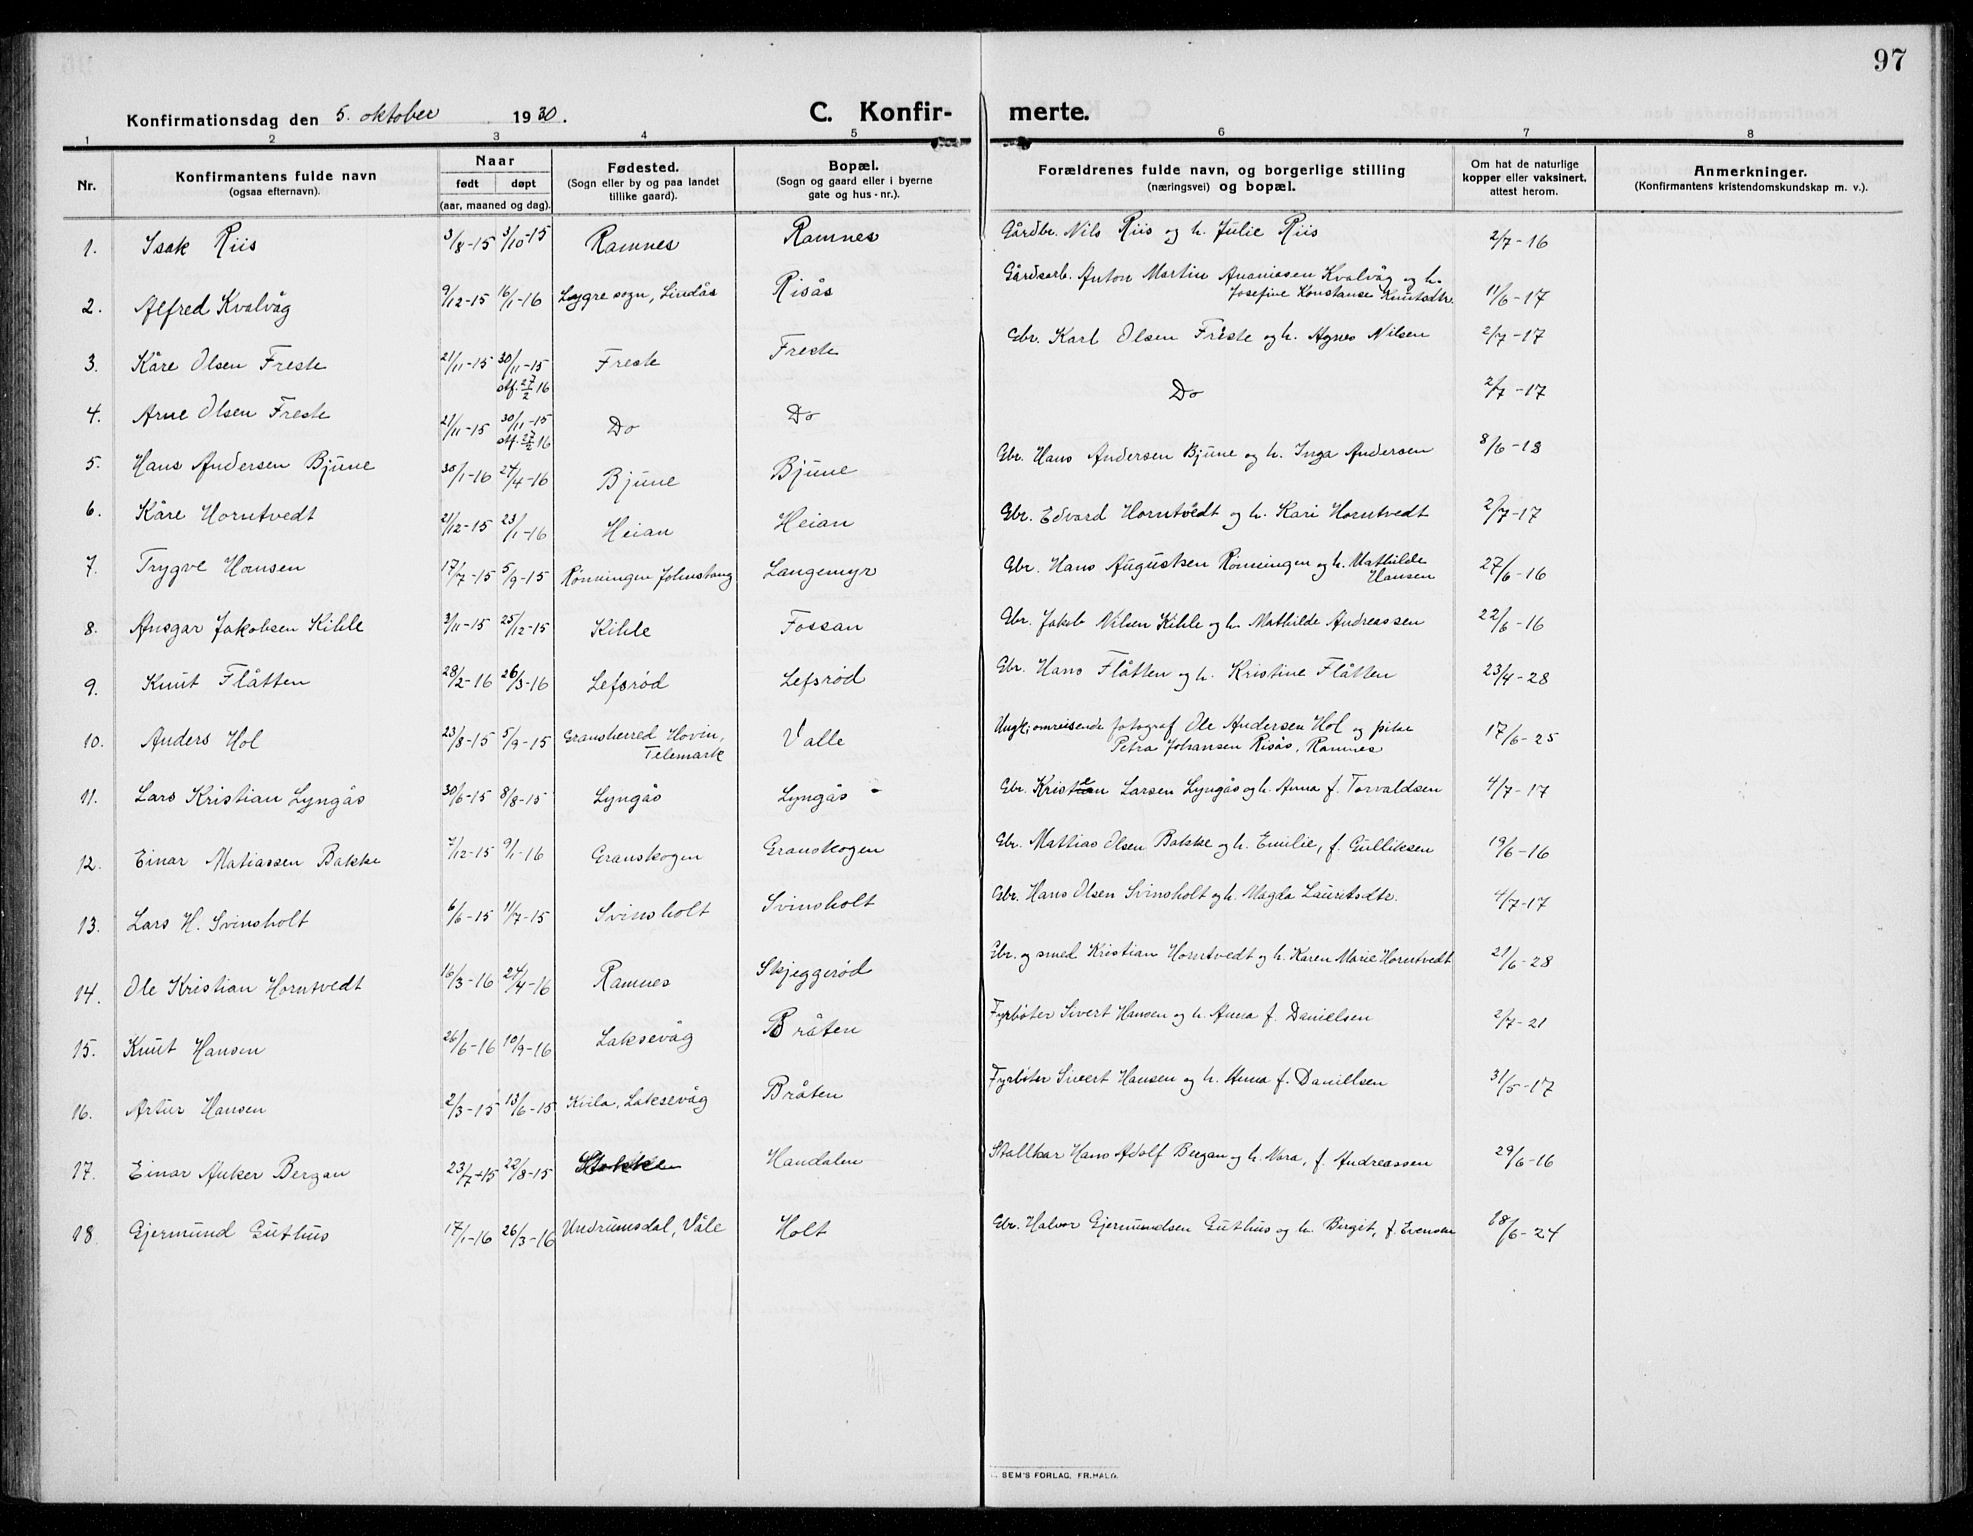 97
Konfirmationsdag den 5. oktober 1930. C. Konfir- merte.
1 2 3 4 5 6 7 8
Nr. Konfirmantens fulde navn (ogsaa efternavn). Naar født døpt (aar, maaned og dag). Fødested. (Sogn eller by og paa landet tillike gaard). Bopæl. (Sogn og gaard eller i byerne gate og hus-nr.). Forældrenes fulde navn, og borgerlige stilling (næringsvei) og bopæl. Om hat de naturlige kopper eller vaksinert, attest herom. Anmerkninger. (Konfirmantens kristendomskundskap m. v.).
1. Isak Riis 3/8-15 3/10-15 Ramnes Ramnes Gårdbr. Nils Riis og h. Julie Riis 2/7-16
2. Alfred Kvalvåg 9/12-15 16/1-16 Lygre sogn, Lindås Risås Gårdsarb. Anton Martin Ananiassen Kvalvåg og h.
Josefine Konstanse Knutsdtr. 11/6-17
3. Kåre Olsen Freste 21/11-15 30/11-15 Freste Freste Gbr. Karl Olsen Freste og h. Agnes Nilsen 2/7-17
stf. 27/2 16
4. Arne Olsen Freste 21/11-15 30/11-15 Do Do Do 2/7-17
stf. 27/2 16
5. Hans Andersen Bjune 30/1-16 24/4-16 Bjune Bjune Gbr. Hans Andersen Bjune og h. Inga Andersen 8/6-18
6. Kåre Horntvedt 21/12-15 23/1-16 Heian Heian Gbr. Edvard Horntvedt og h. Kari Horntvedt 2/7-17
7. Trygve Hansen 17/7-15 5/9-15 Rønningen Johnstang Langemyr Gbr. Hans Augustsen Rønningen og h. Mathilde
Hansen 27/6-16
8. Ansgar Jakobsen Kihle 3/11-15 25/12-15 Kihle Fossan Gbr. Jakob Nilsen Kihle og h. Mathilde Andreassen 22/6-16
9. Knut Flåtten 28/2-16 26/3-16 Lefsrød Lefsrød Gbr. Hans Flåtten og h. Kristine Flåtten 23/4-28
10. Anders Hol 23/8-15 5/9-15 Gransherred Hovin, Valle Ungk. omreisende fotograf Ole Andersen Hol og pike
Telemark Petra Johansen Risås, Ramnes 17/6-25
11. Lars Kristian Lyngås 30/6-15 8/8-15 Lyngås Lyngås Gbr. Kristen Larsen Lyngås og h. Anna f. Torvaldsen 4/7-17
12. Einar Matiassen Bakke 7/12-15 9/1-16 Granskogen Granskogen Gbr. Mathias Olsen Bakke og h. Emilie, f. Gulliksen 19/6-16
13. Lars H. Svinsholt 6/6-15 11/7-15 Svinsholt Svinsholt Gbr. Hans Olsen Svinsholt og h. Magda Lauritsdtr. 4/7-17
14. Ole Kristian Horntvedt 16/3-16 24/4-16 Ramnes Skjeggerød Gbr. og smed Kristian Horntvedt og h. Karen Marie Horntvedt 21/6-28
15. Knut Hansen 26/6-16 10/9-16 Laksevåg Bråten Fyrbøter Sivert Hansen og h. Anna f. Danielsen 2/7-21
16. Artur Hansen 2/3-15 13/6-15 Kvila, Laksevåg Bråten Fyrbøter Sivert Hansen og h. Anna f. Daniellsen 31/5-17
17. Einar Anker Bergan 23/7-15 22/8-15 Stokke Handalen Stallkar Hans Adolf Bergan og h. Nora, f. Andreassen 29/6-16
18. Gjermund Guthus 17/1-16 26/3-16 Undrumsdal, Våle Holt Gbr. Halvor Gjermundsen Guthus og h. Birgit, f. Evensen 18/6-24
SEM'S FORLAG, FR.HALD.